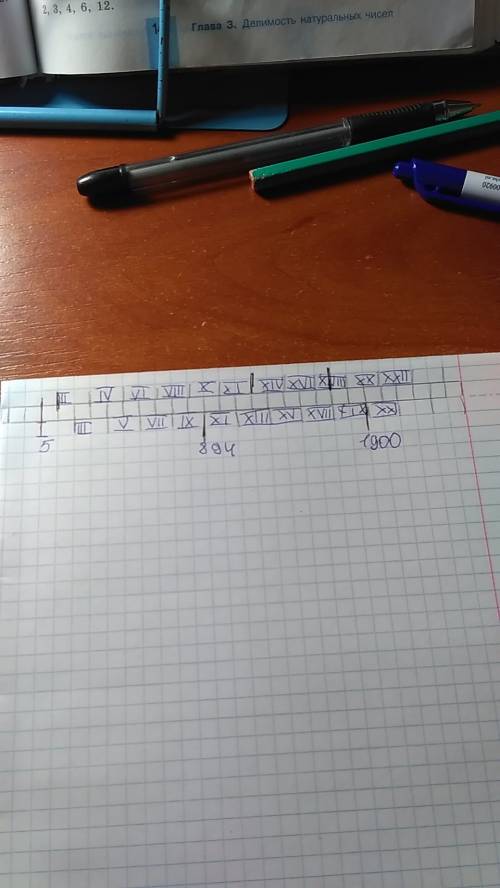 2, 3, 4, 6, 12.
Глава 3. Делимость натуральных чисел
II IV VI VIII X XI XIV XVI XVIII XX XXII
III V VII IX XI XIII XV XVII XIX XX
5 894 1900